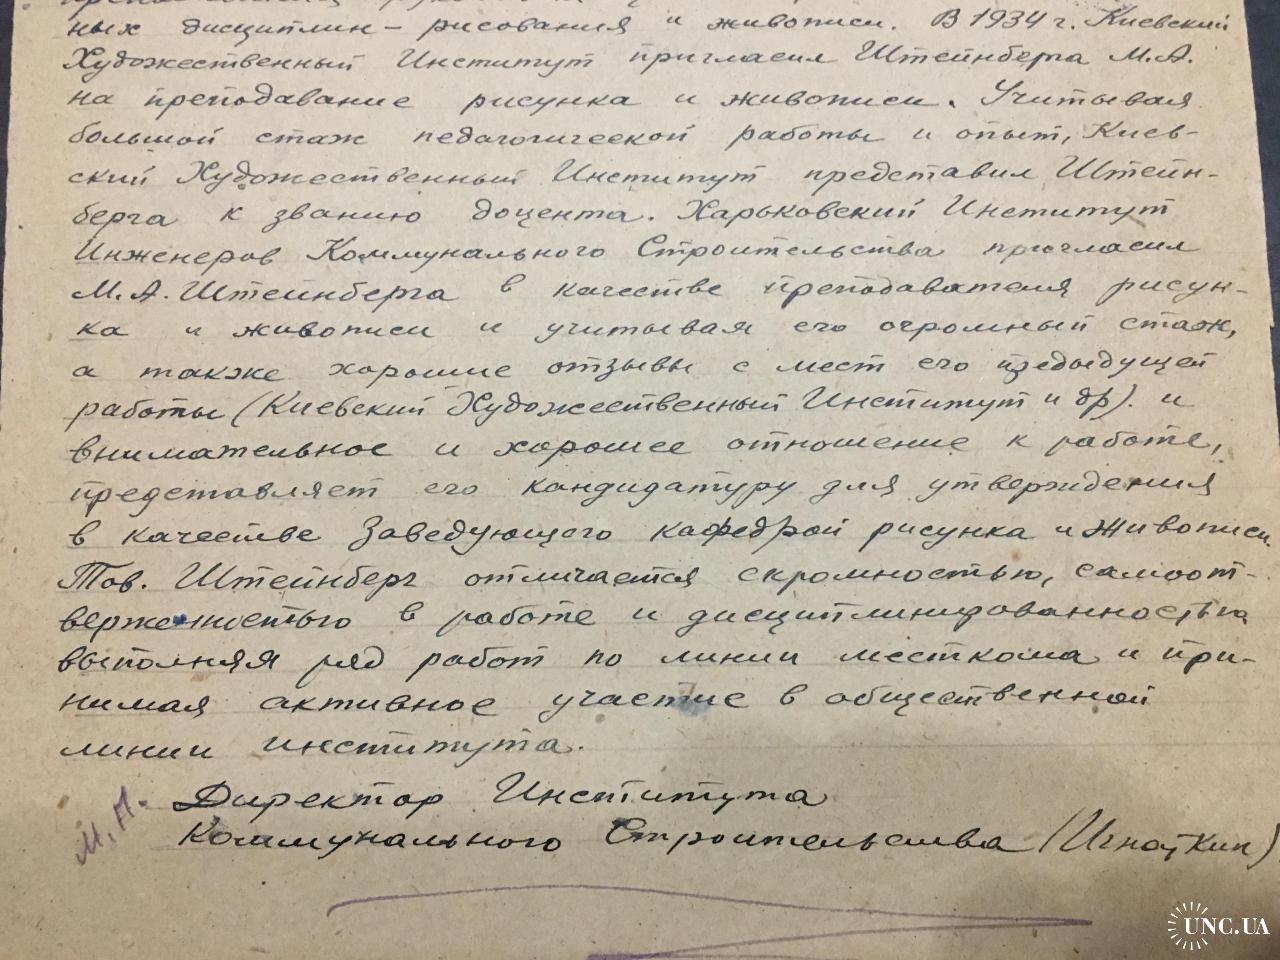 ных дисциплин – рисования и живописи. В 1934 г. Киевский
Художественный Институт пригласил Штейнберга М.А.
на преподавание рисунка и живописи. Учитывая
большой стаж педагогической работы и опыт, Киев-
ский Художественный Институт представил Штейн-
берга к званию доцента. Харьковский Институт
Инженеров Коммунального Строительства пригласил
М.А. Штейнберга в качестве преподавателя рисун-
ка и живописи и учитывая его огромный стаж,
а также хорошие отзывы с мест его предыдущей
работы (Киевский Художественный Институт и др). и
внимательное и хорошее отношение к работе,
представляет его кандидатуру для утверждения
в качестве Заведующего кафедрой рисунка и живописи.
Тов. Штейнберг отличается скромностью, самоот-
верженностью в работе и дисциплинированностью
выполняя ряд работ по линии месткома и при-
нимая активное участие в общественной
линии института.
Директор Института
Коммунального Строительства (Игнаткин)
М.П.
UNC.UA